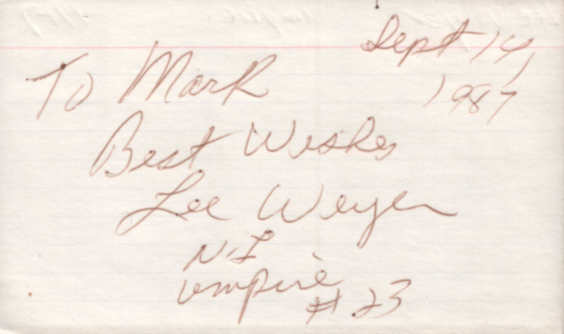 Sept 14,
1987
To Mark
Best Wishes
Lee Weyer
N.L
umpire
# 23